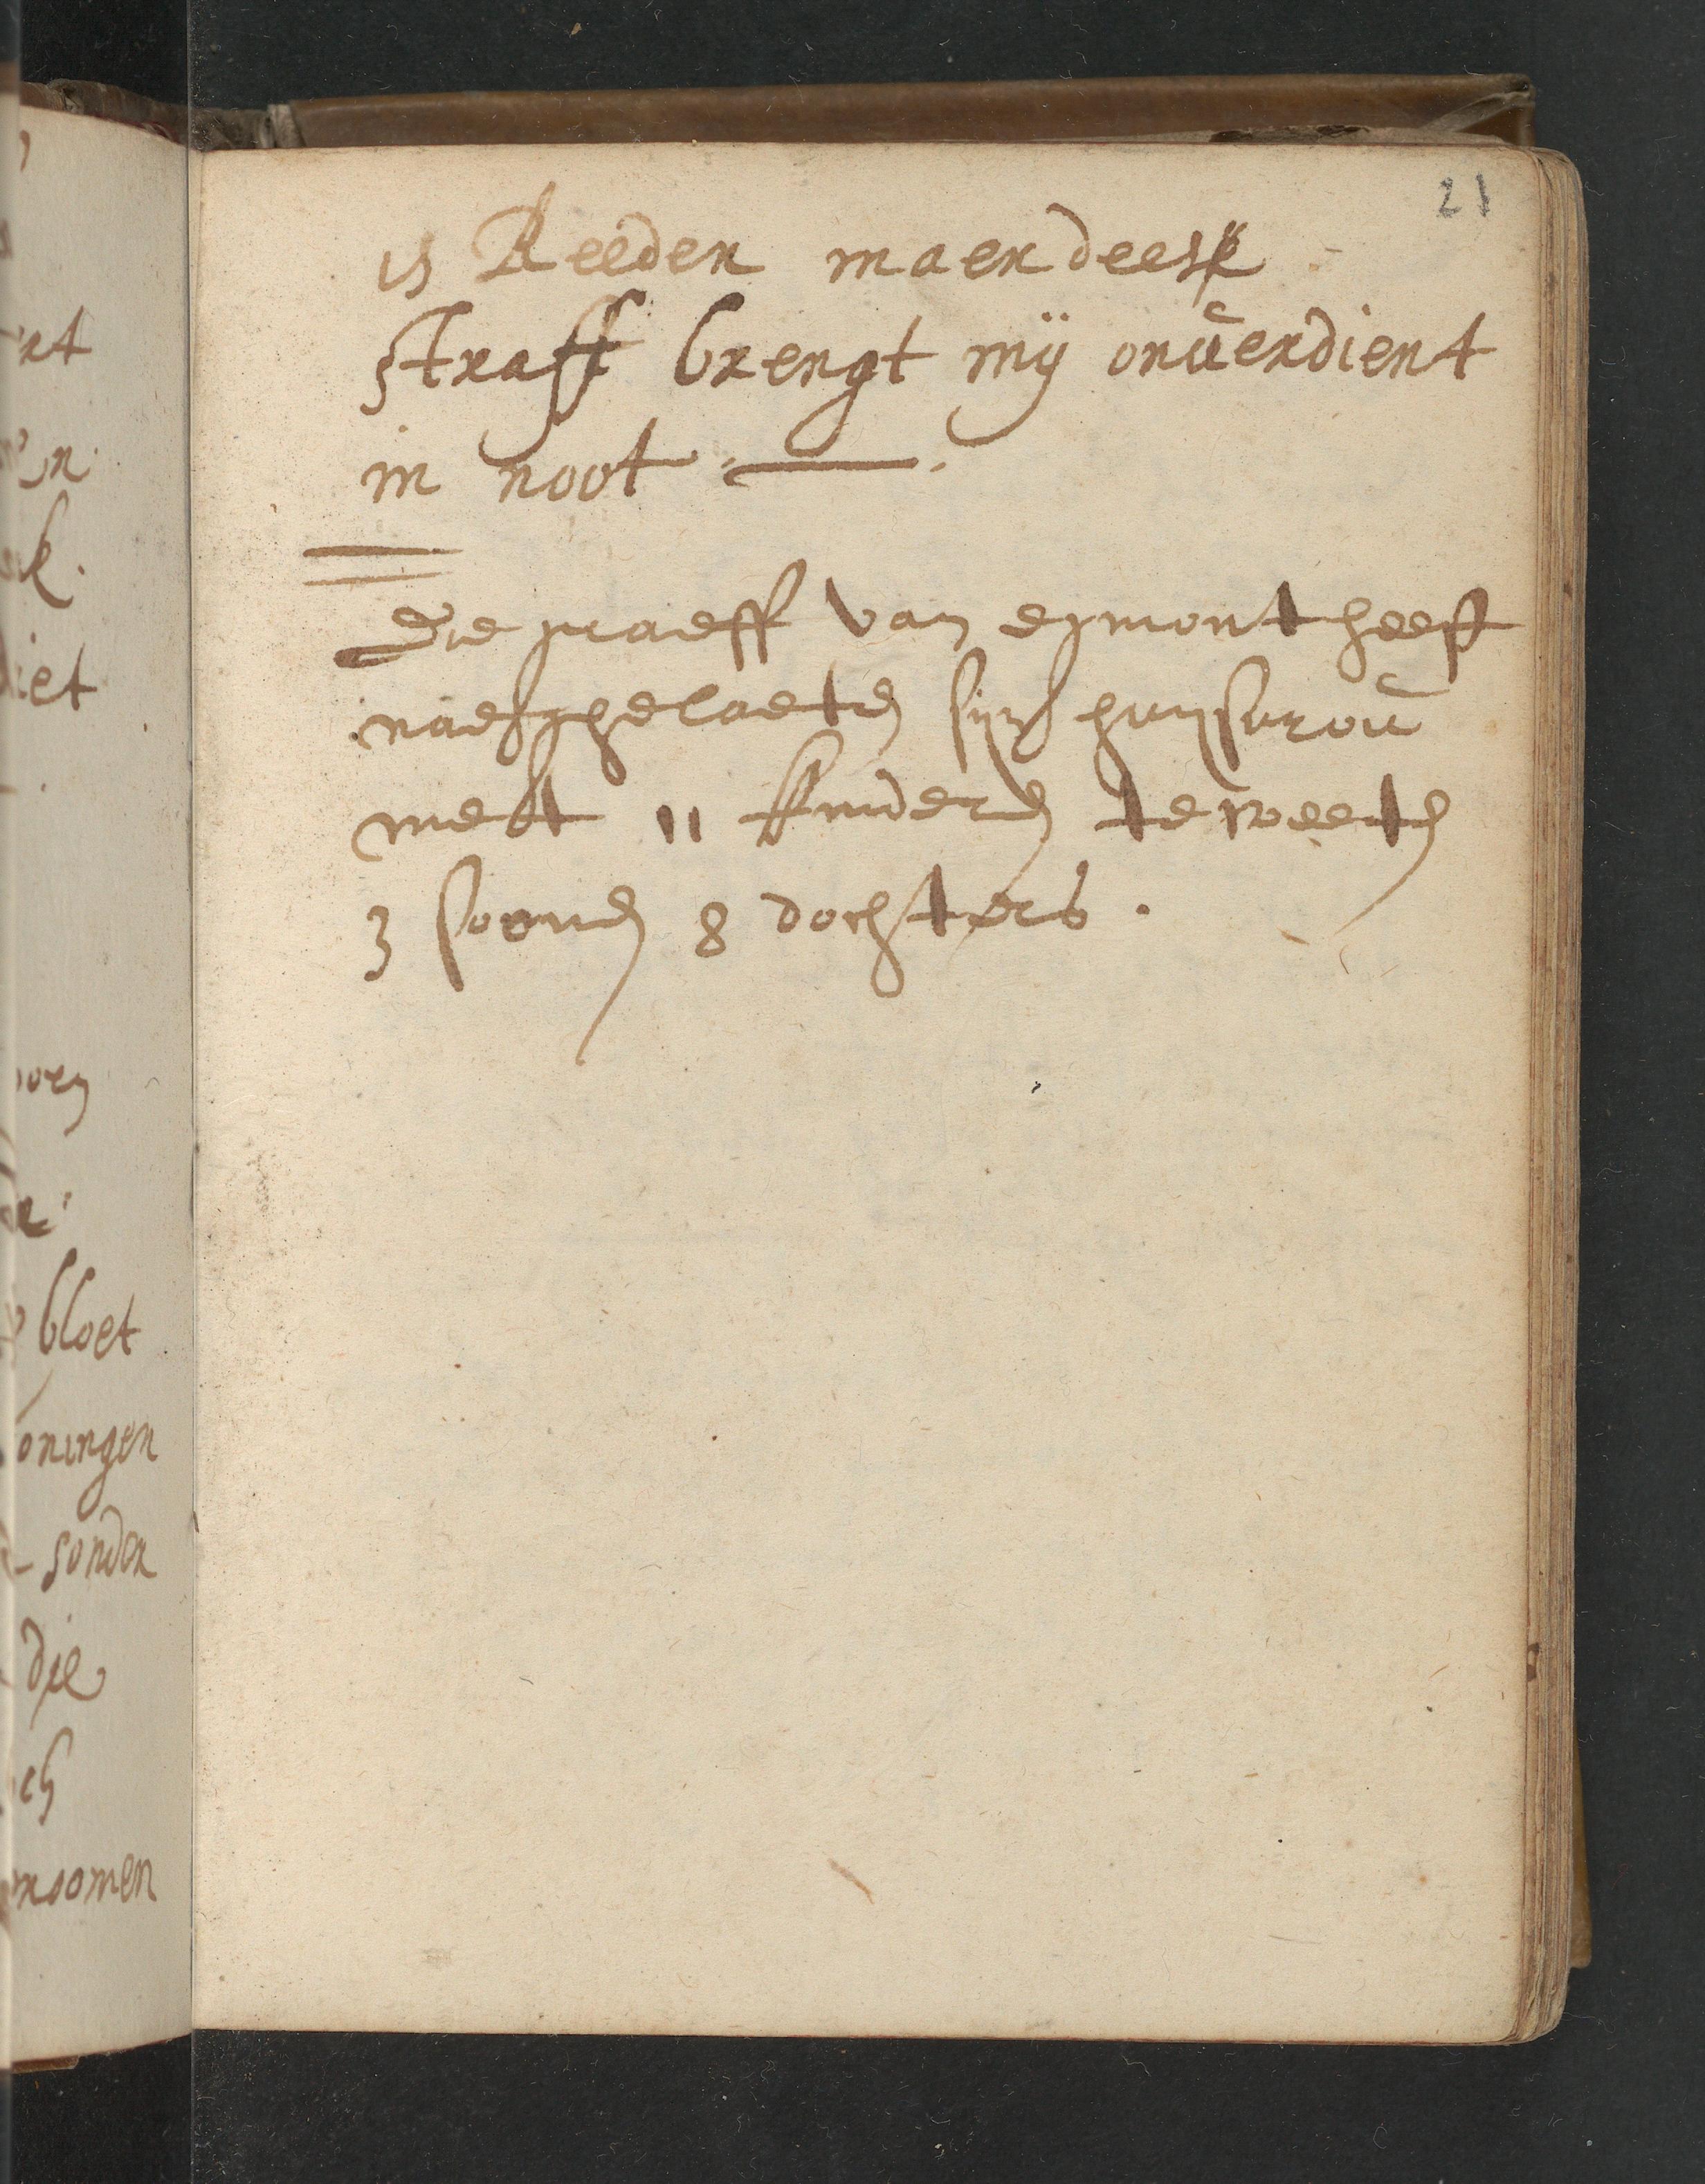 21
is Reeden maer deese
straff brengt mij onúerdient
in noot
Die graeff van egmont heeft
naerghelaeten sijn huijsvroú
mett 11 kinderen te weeten
3 soonen 8 dochters.
rt
n
k.
iet
oen
e
bloet
oningen
sonder
die
ch
noomen